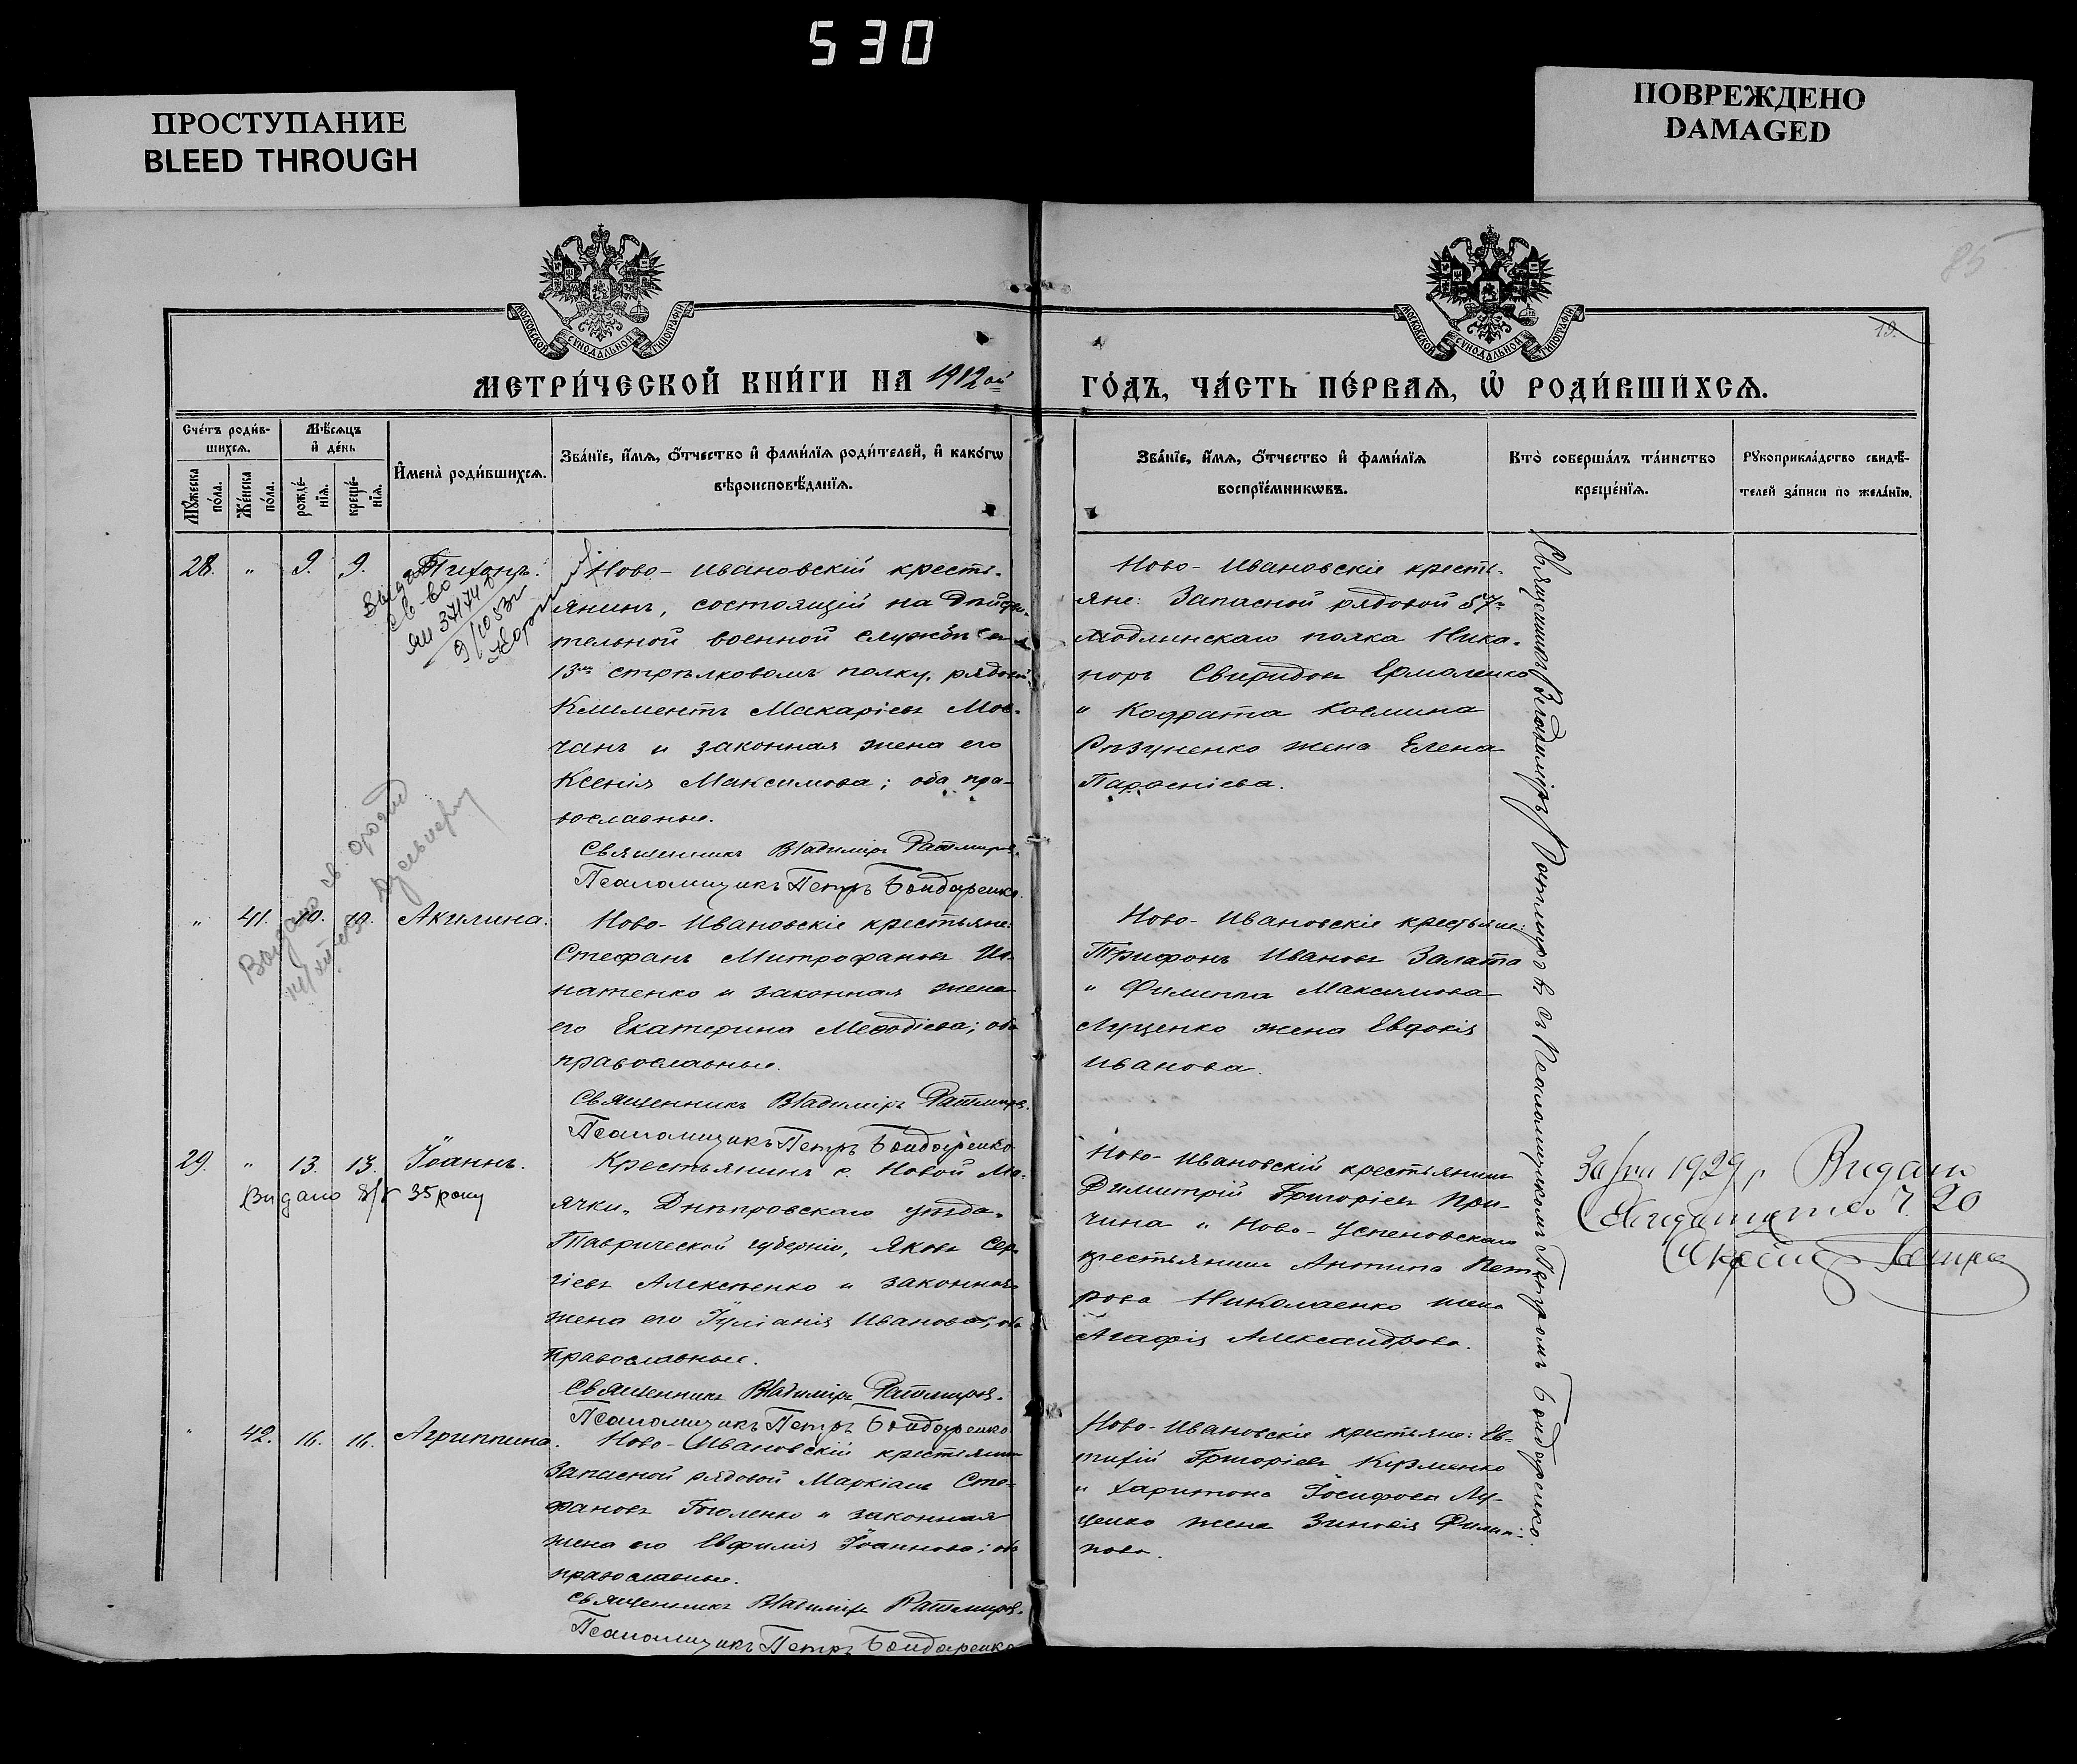 530
ПРОСТУПАНИЕ
BLEED THROUGH
ПОВРЕЖДЕНО
DAMAGED
85
19.
МОСКОВСКОЙ СѴНОДАЛЬНОЙ ТИПОГРАФІИ
МОСКОВСКОЙ СѴНОДАЛЬНОЙ ТИПОГРАФІИ
МЕТРИ́ЧЕСКОЙ КНИ́ГИ НА 1912ой ГО́ДЪ, ЧА́СТЬ ПЕ́РВАЯ, Ѿ РОДИ́ВШИХСЯ.
Сче́тъ роди́в-
шихся.
Мѣ́сяцъ
и҆ де́нь
Мꙋ́жеска
по́ла.
Же́нска
по́ла.
рожде́-
нїя.
креще́-
нїя.
И҆мена̀ роди́вшихся.
Зва́нїе, и҆́мя, ѻ҆́тчество и҆ фами́лїя роди́телей, и҆ како́гѡ
вѣроисповѣ́данїя.
Зва́нїе, и҆́мя, ѻ҆́тчество и҆ фами́лїя
воспрїе́мникѡвъ.
Кто̀ соверша́лъ та́инство
креще́нїя.
Рꙋкоприкла́дство свидѣ́-
телей за́писи по жела́нїю.
28. " 9. 9. Тихонъ.
Ново-Ивановскій кресть-
янинъ, состоящій на дѣйстви-
тельной военной службѣ въ
13мъ стрѣлковомъ полку, рядовой
Климентъ Макаріевъ Мов-
чанъ и законная жена его
Ксенія Максимова; оба пра-
вославные.
Священникъ Владиміръ Ратмировъ.
Псаломщикъ Петръ Бондаренко.
Ново-Ивановскіе кресть-
яне: Запасной рядовой 57го
Модлинскаго полка Ника-
норъ Свиридовъ Ермоленко
и Кодрата Космина
Рѣзуненко жена Елена
Парѳеніева.
Выдано
св-во
" 41. 10. 10. Акилина.
Ново-Ивановскіе крестьяне:
Стефанъ Митрофановъ Иг-
натенко и законная жена
его Екатерина Меѳодіева; оба
православные.
Священникъ Владиміръ Ратмировъ.
Псаломщикъ Петръ Бондаренко
Ново-Ивановскіе крестьяне:
Трифонъ Ивановъ Залата
и Филиппа Максимова
Луценко жена Евдокія
Иванова.
29. " 13. 13. Іоаннъ.
Видано 8/V 35 року
Крестьянинъ с. Новой Ма-
ячки, Днѣпровскаго уѣзда,
Таврической губерніи, Яковъ Сер-
гіевъ Алексѣенко и законная
жена его Іуліанія Иванова; оба
православные.
Священникъ Владиміръ Ратмировъ.
Псаломщикъ Петръ Бондаренко
Ново-Ивановскій крестьянинъ
Димитрій Григоріевъ При-
чина и Ново-Успеновскаго
крестьянина Антипа Пет-
рова Николаенко жена
Агафія Александрова.
1929 р Видани
ч. 20
" 42. 16. 16. Агриппина.
Ново-Ивановскій крестьянинъ
Запасной рядовой Маркіанъ Сте-
фановъ Гоголенко и законная
жена его Евфимія Іоаннова; оба
православные.
Священникъ Владиміръ Ратмировъ.
Псаломщикъ Петръ Бондаренко
Ново-Ивановскіе крестьяне: Ев-
тихій Григоріевъ Кирменко
и Харитона Іосифова Лу-
ценко жена Зиновія Филип-
пова.
Священникъ Владиміръ Ратмировъ съ Псаломщикомъ Петромъ Бондаренко.